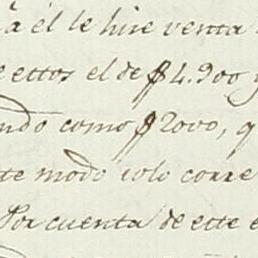 à él le hise venta
ettos el de $4.900 y
ndo como $2000, q
te modo solo corre
Por cuenta de este e